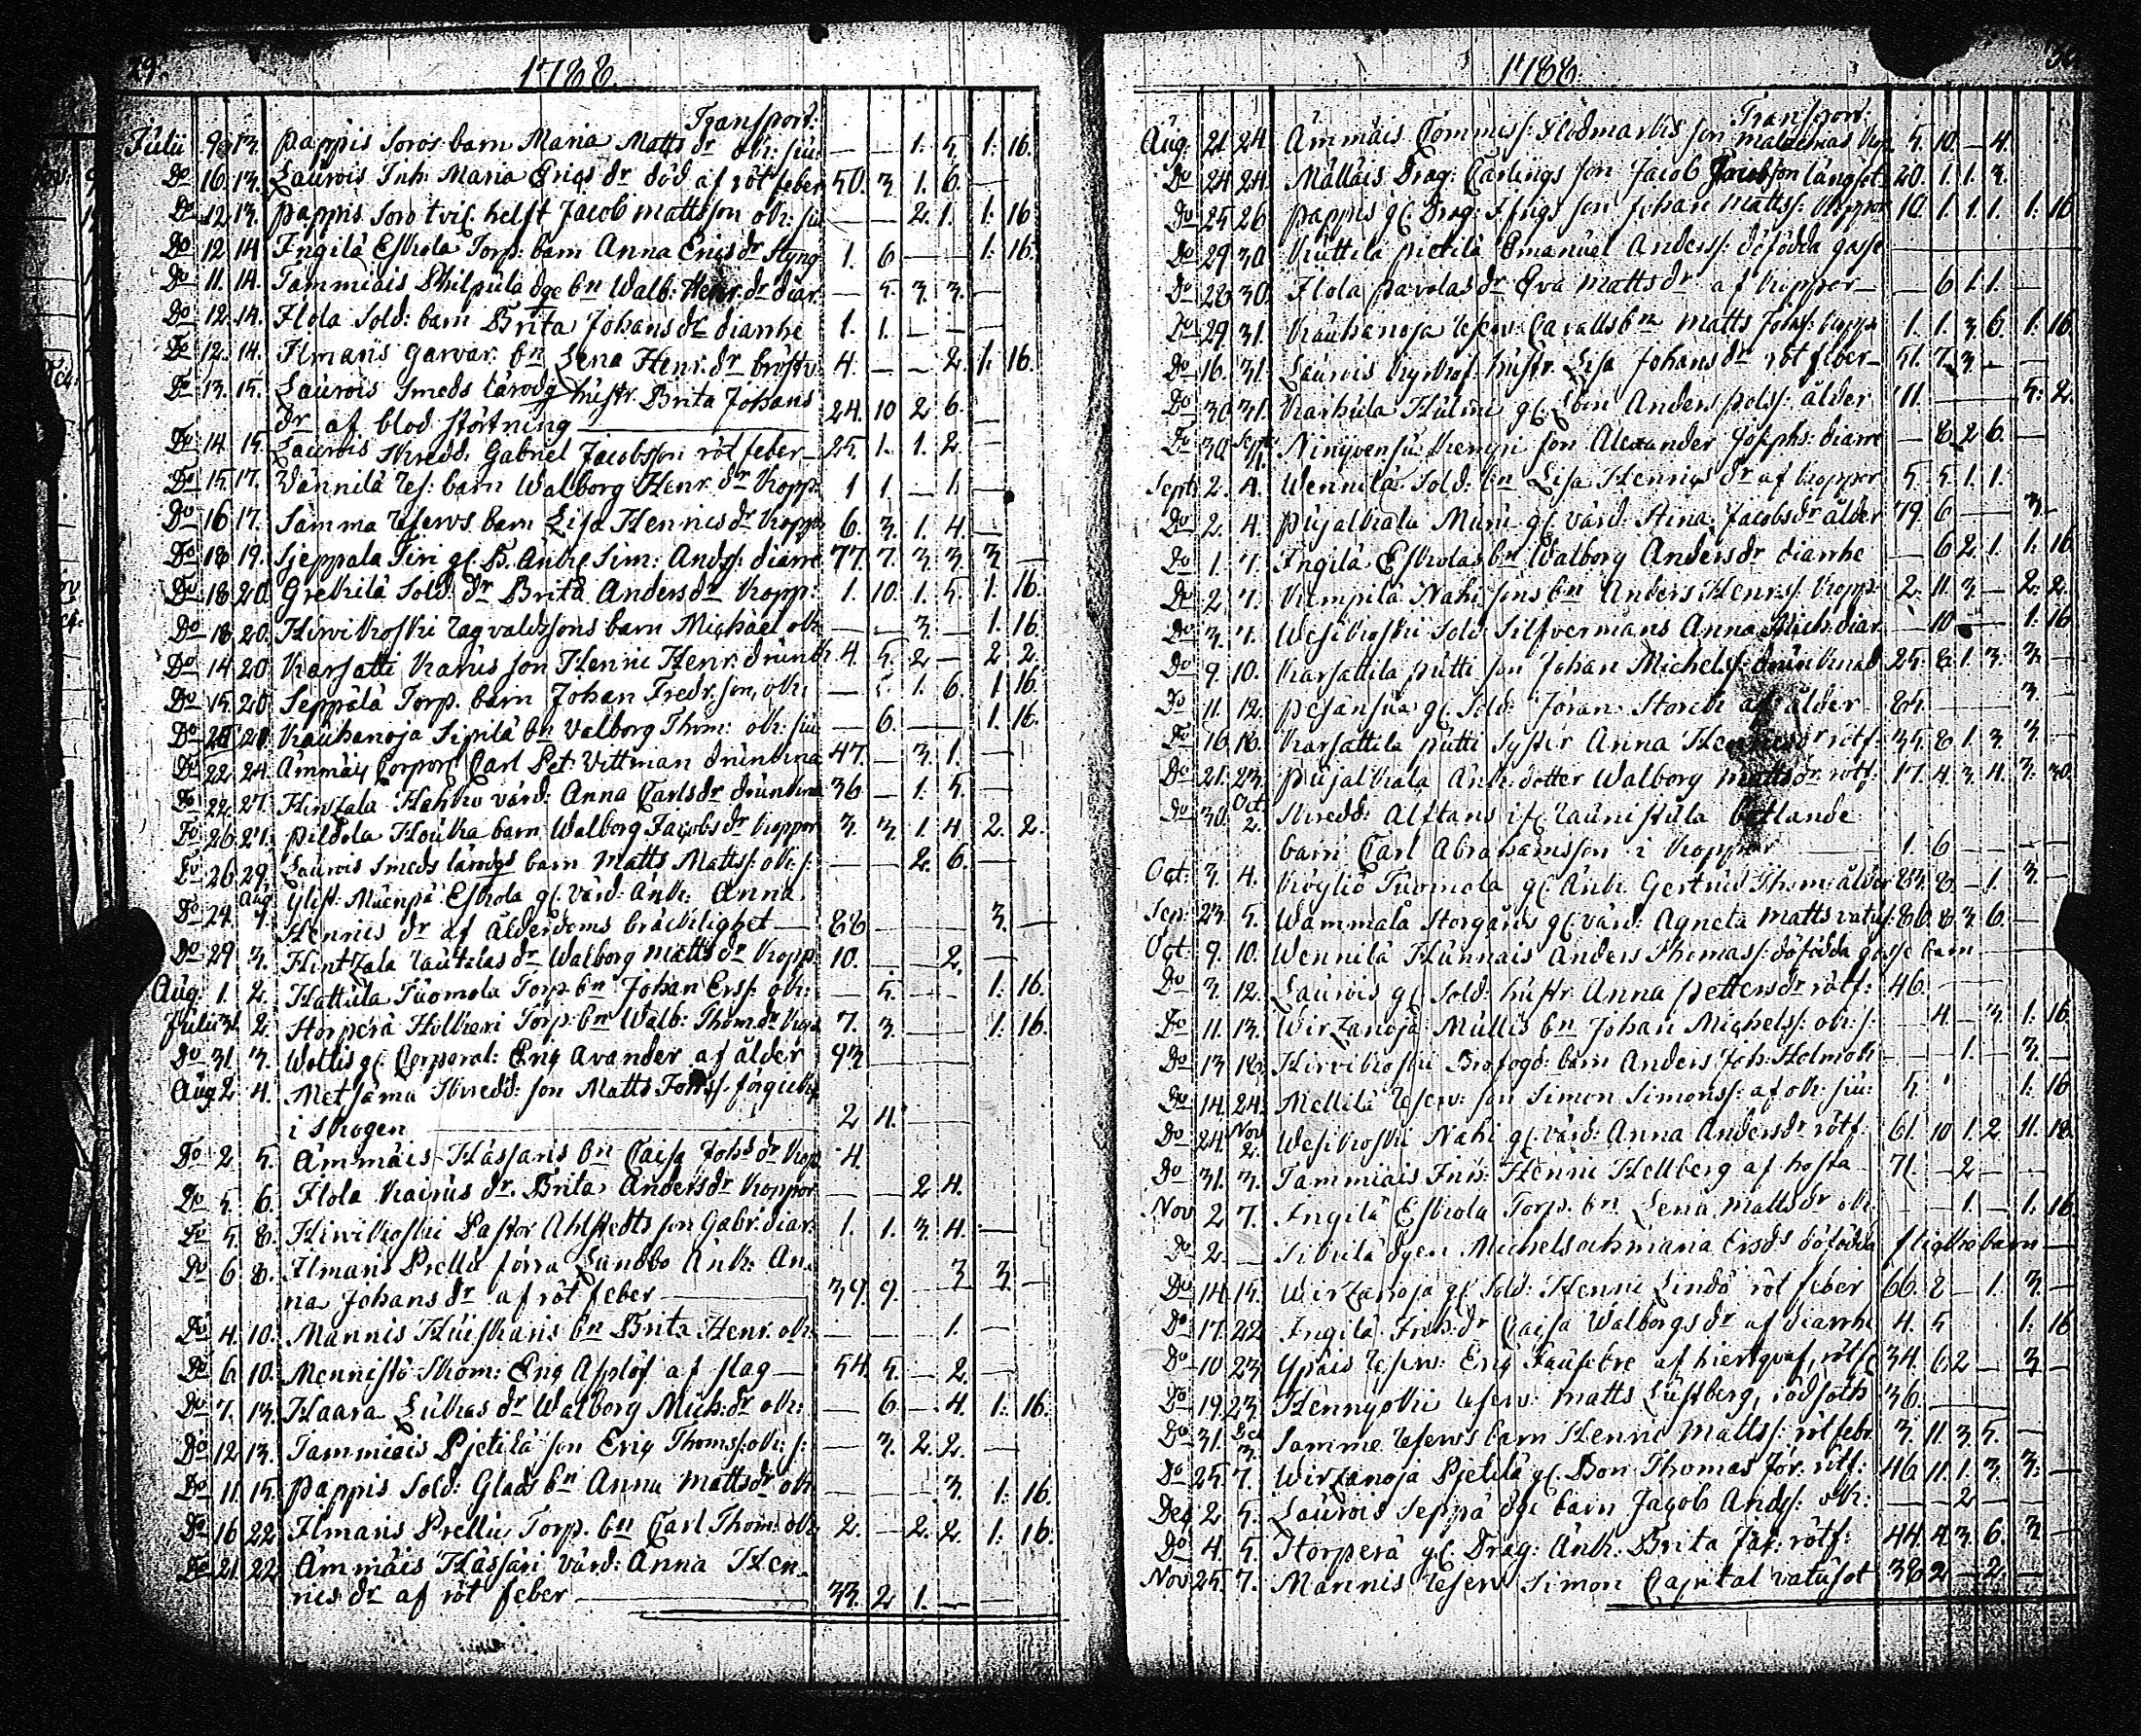 1788.
Transport:
Julii 9. 13. Pappis Soros barn Maria Matts dr ok: sju: — — 1. 5. 1. 16.
Do 16. 13. Laurois Inh: Maria Erics dr död af röt feber 50. 3. 1. 6. —
Do 12. 13. Pappis Soro tvil. helft Jacob Mattsson ok: sju — — 2. 1. 1. 16
Do 12 14. Ingilä Eskola Torp: barn Anna Erics dr styng 1. 6 — — 1. 16.
Do 11. 14. Tammiais Philpula dge bn Walb: Henr. dr diar. — 5. 3. 3. —
Do 12. 14. Flola Sold: barn Brita Johans dr diarrhe 1. 1. — — —
Do 12. 14. Ilmaris garvar. bn Lena Henr. dr bröstv: 4. — — 2. 1. 16.
Do 13. 15. Laurois Smeds lärodg hustr. Brita Johans
dr af blod störtning — 24. 10 2 6. —
Do 14 15. Laurois Skredd. Gabriel Jacobsson röt feber — 25. 1. 1. 2 —
Do 15. 17. Vännilä Res: barn Walborg Henr. dr Kopp: 1 1. — 1. —
Do 16 17. Samma Reserv. barn Lisa Henrics dr Kopp: 6. 3. 1. 4. —
Do 18 19. Sjeppala Firi gl. B. Änkl. Sim: Andss: diarre 77. 7. 3. 3. 3 —
Do 18. 20. Grekilä Sold: dr Brita Anders dr Kopp: 1. 10. 1. 5. 1. 16.
Do 18. 20. Kirvikoski Ragvaldssons barn Michael ok: — — 3. — 1. 16.
Do 14 20 Karsatti Karus son Henric Henr. drunk 4. 5. 2 — 2 2.
Do 15. 20 Seppälä Torp. barn Johan Fredr. son, ok: — 1. 6. 1 16.
Do 20 20. Kauhanoja Sipilä bn Valborg Thom: ok: sju — 6. — — 1. 16.
Do 22. 24. Ämmäis Corpor: Carl Pet: Vittman drunkna 47. — 3. 1. —
Do 22. 27. Hinzala Hahko värd: Anna Carls dr drunkna 36 — 1. 5. —
Do 26 27. Pildola Houka barn Walborg Jacobs dr Koppor 3. 3. 1. 4 2. 2.
Do 26 29. Laurois Smeds lärodgs barn Matts Mattss: ok: s: — — 2. 6. —
Do 24. Aug. 1. Ylist: Mäenpä Eskola gl. värd: Änk: Anna
Henrics dr af Ålderdoms bräcklighet — 88 3. —
Do 29 3. HintZala Rautelas dr Walborg Matts dr Kopp: 10. — — 2. —
Aug: 1. 2. Hattula Tuomola Torp. bn Johan Ersf: ok: — 5. — — 1. 16.
Julii 31. 2. Storperä Holkeri Torp: bn Walb: Thom. dr Kopp 7. 3 — — 1. 16.
Do 31. 3. Wellis gl. Corporal: Eric Avander af ålder 93. —
Aug 2 4. Metsämä Skredd: son Matts Johss: förgieks
i Skogen — 2 4.
Do 2 5. Ämmäis Hässäris bn Caisa Johs dr Kop 4.
Do 5. 6. Flola Kairus dr. Brita Anders dr Koppor — — 2 4.
Do 5. 8. Kirvikoski Pastor Ahlstedts son Gabr. diar: 1. 1. 3. 4. —
Do 6 8. Ilmaris Prellu förra Landbo Änk: An=
na Johans dr af röt feber — 39. 9. — 3 3. —
Do 4. 10. Mannis Huiskaris bn Brita Henr. ok: — — — 1. —
Do 6. 10. Mennistö Skom: Eric Asplöf af slag — 54. 5. — 2. —
Do 7. 13. Haara Lukas dr Walborg Mich: dr ok: — 6. — 4. 1. 16.
Do 12. 13. Tammiais Pjetilä son Eric Thomss: ok: s: — 3. 2. 2. —
Do 11. 15. Pappis Sold: Glads bn Anna Matts dr ok: — — — 3. 1. 16.
Do 16 22 Ilmaris Prellu Torp. bn Carl Thom: ok: 2. — 2. 2. 1. 16.
Do 21. 22 Ämmäis Hässäri värd: Anna Hen=
rics dr af röt feber — 33. 2 1. — —
1788.
Transport:
Aug: 21. 24. Ämmäis Commiss: Flodmarks son Kop 5. 10. — 4.
Do 24 24. Mälläis Drag: Carlings son Jacob Jacobsson långsot 20. 1. 1. 3.
Do 25 26 Pappis gl. Drag: son Johan Mattss: Koppor 10. 1. 1. 1. 1. 16
Do 29 30. Kuttila Pietilä Emanuel Anderss: döfödda gosse
Do 28. 30. Flola Pavolas dr Eva Matts dr af Koppor — — 6 1. 1. —
Do 29. 31. Kauhanoja Reserv: Cavalls bn Matts Johss: Kopp: 1. 1. 3 6. 1. 16
Do 16. 31. Laurois hustr. Lisa Johans dr röt feber — 51. 7. 3 — —
Do 30. 31. Karhula Hulmi gl. Son Anders Polss: ålder 11. — — 5. 2.
Do 30 Sept: 1. Ninyvensu Kenni son Alexander Josephs: diarre — 8. 2 6. —
Sept: 2. 4. Wennilä Sold: bn Lisa Henrics dr af koppor 5. 5. 1. 1.
Do 2. 4. Pujalkala Muri gl. värd. Stina Jacobs dr ålder 79. 6 3.
Do 1. 7. Ingilä Eskolas bn Walborg Anders dr diarrhe — 6 2. 1. 1. 16
Do 2 7. Kumpila Nahi sons bn Anders Henrss: Kopp: 2. 11. 3 — 2. 2.
Do 3. 7. Wesikoski Sold: Silfvermans Anna Mich: diar — 10 — 1. 16
Do 9. 10. Karsattila Putti son Johan Michelss: drunknad 25. 8. 1. 3. 3. —
Do 11. 12. Pesänsua gl. Sold: Jöran Storck af ålder — 81. 3.
Do 16. 18. Karsattila Putti Syster Anna Henrics dr rötf: 35. 8. 1. 3. 3
Do 21. 23. Pujalkala Änk: dotter Walborg Matts dr rötf: 17. 4. 3. 4. 3. 30.
Do 30. Oct 2. Skredd: Alftans Raunistula betlande
barn Carl Abrahamsson i Koppor — 1. 6
Oct: 3. 4. Köyliö Tuomola gl. Änk: Gertrud Thom: ålder 83. 8. — 1. 3.
Sep: 23. 5. Wammala Storgårds gl. värd: Agneta Matts vatus: 86. 8. 3. 6.
Oct 9. 10. Wennilä Hunnais Anders Thomass: döfödda gosse barn
Do 3. 12. Laurois gl. Sold: hustr: Anna Petters dr rötf: 46.
Do 11. 13. WirZanoja Mullis bn Johan Michelss: ok: s: 4. — 3. 1. 16
Do 13 18. Kirvikoski Brofogd: barn Anders Joh: Holm ok: — — 1. — 3. —
Do 14. 24. Mellilä Reserv: son Simon Simonss: af ok: sju: 5 1. 16
Do 24. Nov 2. Wesikoski Nahi gl. värd: Anna Anders dr rötf: 61. 10 1. 2. 11. 18.
Do 31. 3. Tammiais Inh: Henric Hellberg af hosta 71. — 2 —
Nov 2 7. Ingilä Eskola Torp. bn Lena Matts dr ok: — — 1. — 1. 16
Do 2. — Sikilä dgen Michels och Maria Ersdr döfödda flickebarn —
Do 14. 15. WirZanoja gl. Sold: Henric Lindö röt feber 66. 2 — 1. 3. —
Do 17. 22 Ingilä Inh: dr Caisa Walborgs dr af diarrhe 4. 5 1. 16
Do 10 23 Ypäis Reserv: Eric af rötf 34. 6 2 — 3 —
Do 19. 23. Hennyoki Reserv: Matts Lustberg, rödsoth 36.
Do 31. Dec 3. Samme Reserv's barn Henric Mattss: röt febr. 3. 11. 3. 5. —
Do 25. 7. WirZanoja Pjetilä gl. Bon Thomas Jör: rötf: 46 11. 1. 3. 3. —
Dec 2. 5. Laurois Seppä dge barn Jacob Andss: ok: — — 2 — —
Do 4. 5. Storperä gl. Drag: Änk: Brita Jac: rötf: 44. 4 3 6. 3 —
Nov 25. 7. Mannis Reserv Simon Capital vatusot 38 2 — 2. —